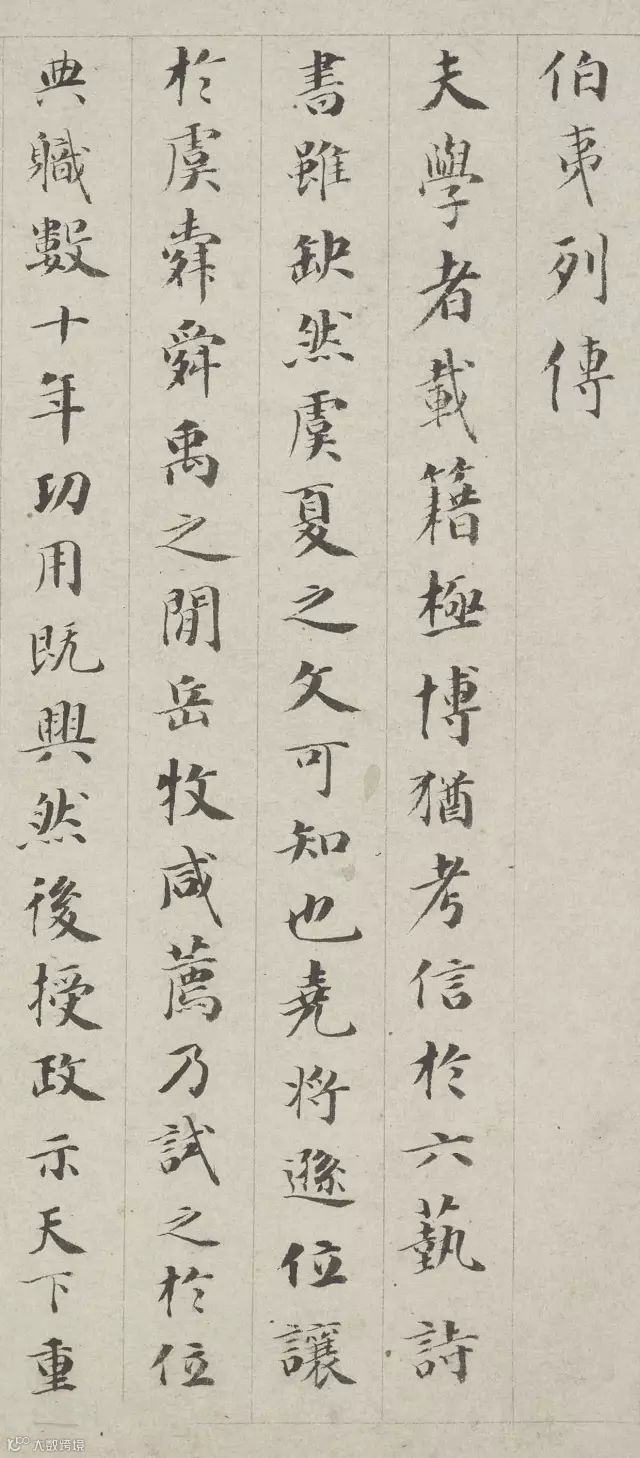 伯夷列傳
夫學者載籍極博猶考信於六藝詩
書雖缺然虞夏之文可知也堯將遜位讓
於虞舜舜禹之閒岳牧咸薦乃試之於位
典職數十年功用既興然後授政示天下重
大数跨境